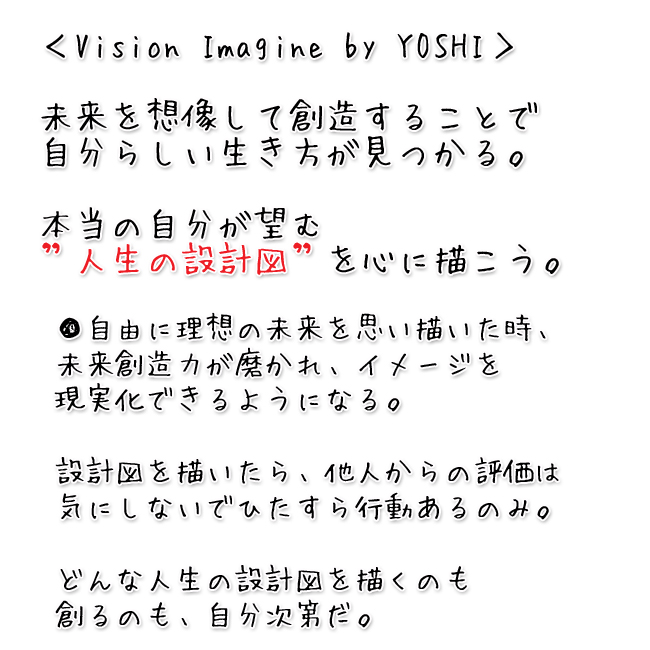 ＜Vision Imagine by YOSHI＞
未来を想像して創造することで
自分らしい生き方が見つかる。
本当の自分が望む
”人生の設計図”を心に描こう。
◉自由に理想の未来を思い描いた時、
未来創造力が磨かれ、イメージを
現実化できるようになる。
設計図を描いたら、他人からの評価は
気にしないでひたすら行動あるのみ。
どんな人生の設計図を描くのも
創るのも、自分次第だ。